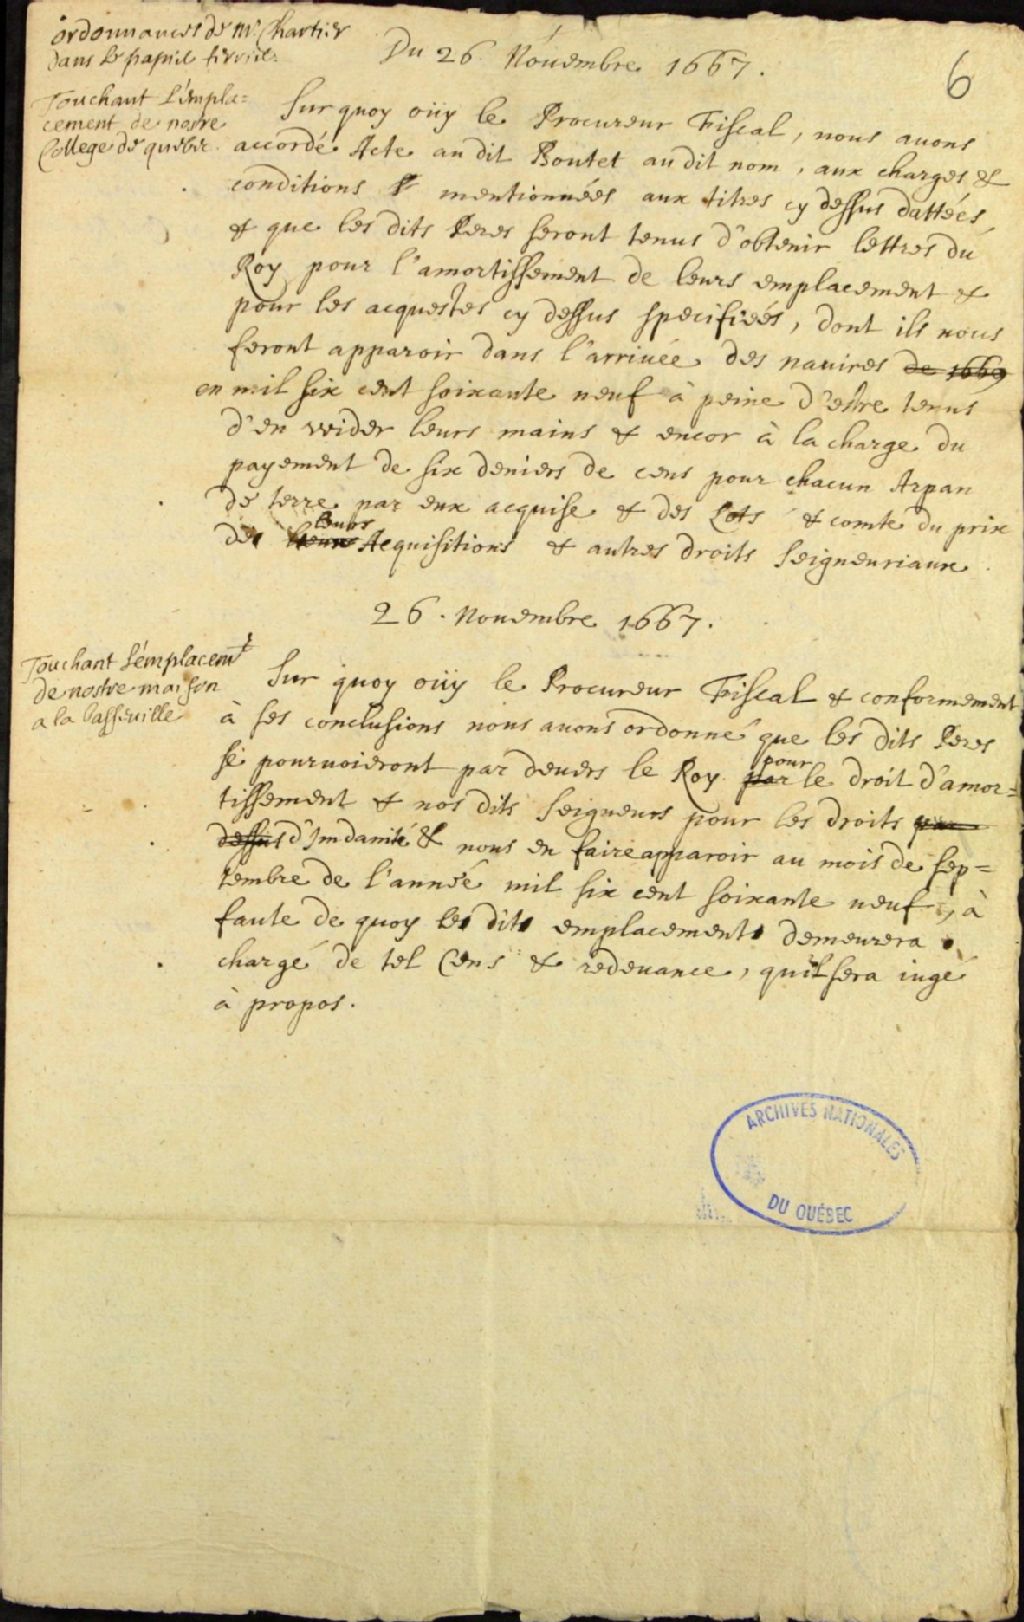 ordonnances de Mr. Chartier
dans le papie terrier.
Du 26 Nouembre 1667.
6
Touchant l'empla=
cement de nostre
College de quebec.
Sur quoy oüy le Procureur Fiscal, nous auons
accordé Acte au dit Boutet au dit nom, aux charges &
conditions mentionnées aux titres cy dessus dattées
& que les dits Peres seront tenus d'obtenir lettres du
Roy pour l'amortissement de leurs emplacement &
pour les acquestes cy dessus specifieés, dont ils nous
feront apparoir dans l'arriuée des nauires de 1669
en mil six cent soixante neuf à peine d'estre tenus
d'en vvider leurs mains & encor à la charge du
payement de six deniers de cens pour chacun Arpan
de terre par eux acquise & des Lots & comte du prix
leurs
des Acquisitions & autres droits seigneuriaux.
26. Nouembre 1667.
Touchant l'emplacemt
de nostre maison
a la basseuille
Sur quoy oüy le Procureur Fiscal & conformement
à ses conclusions nous auons ordonné que les dits Peres
se pouruoieront par deuers le Roy par le droit d'amor=
pour
tissement & nos dits seigneurs pour les droits
dessus d'Indamité & nous en faire apparoir au mois de sep=
tembre de l'anneé mil six cent soixante neuf, à
faute de quoy les dits emplacements demeurera
chargé de tel Cens & redeuance, quil sera iugé
à propos.
ARCHIVES NATIONALES
DU QUÉBEC